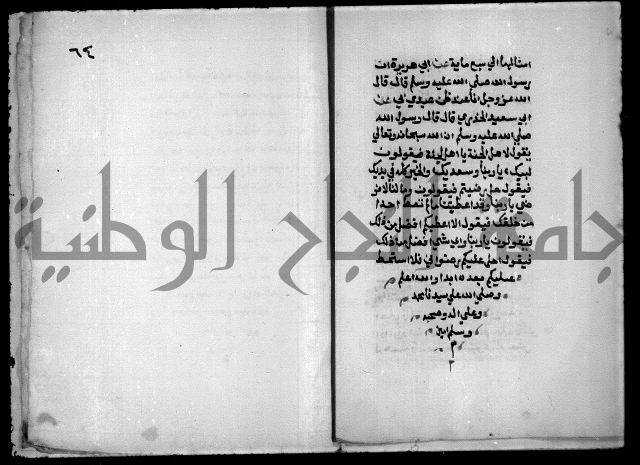 امثالها الي سبع ماية عن ابي هريرة ان
رسول الله صلي الله عليه وسلم قال قال
الله عز وجل انا عند ظن عبدي بي عن
ابي سعيد الخدري قال قال رسول الله
صلي الله عليه وسلم ان الله سبحانه وتعالي
يقول لاهل الجنة يا اهل الجنة فيقولون
لبيك يا ربنا وسعديك والخير كله في يديك
فيقول هل رضيتم فيقولون وما لنا لا نر
ضي يا ربنا وقد اعطيتنا ما لم تعط احدا
من خلقك فيقول الا اعطيكم افضل من ذلك
فيقولون يا ربنا واي شي افضل من ذلك
فيقول احل عليكم رضواني فلا اسخط
عليكم بعده ابدا والله اعلم
وصلي الله علي سيدنا محمد
وعلي اله وصحبه
وسلم امين
م
٦٤
جامعة النجاح الوطنية